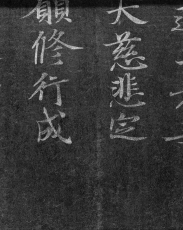 大慈悲定
願修行成